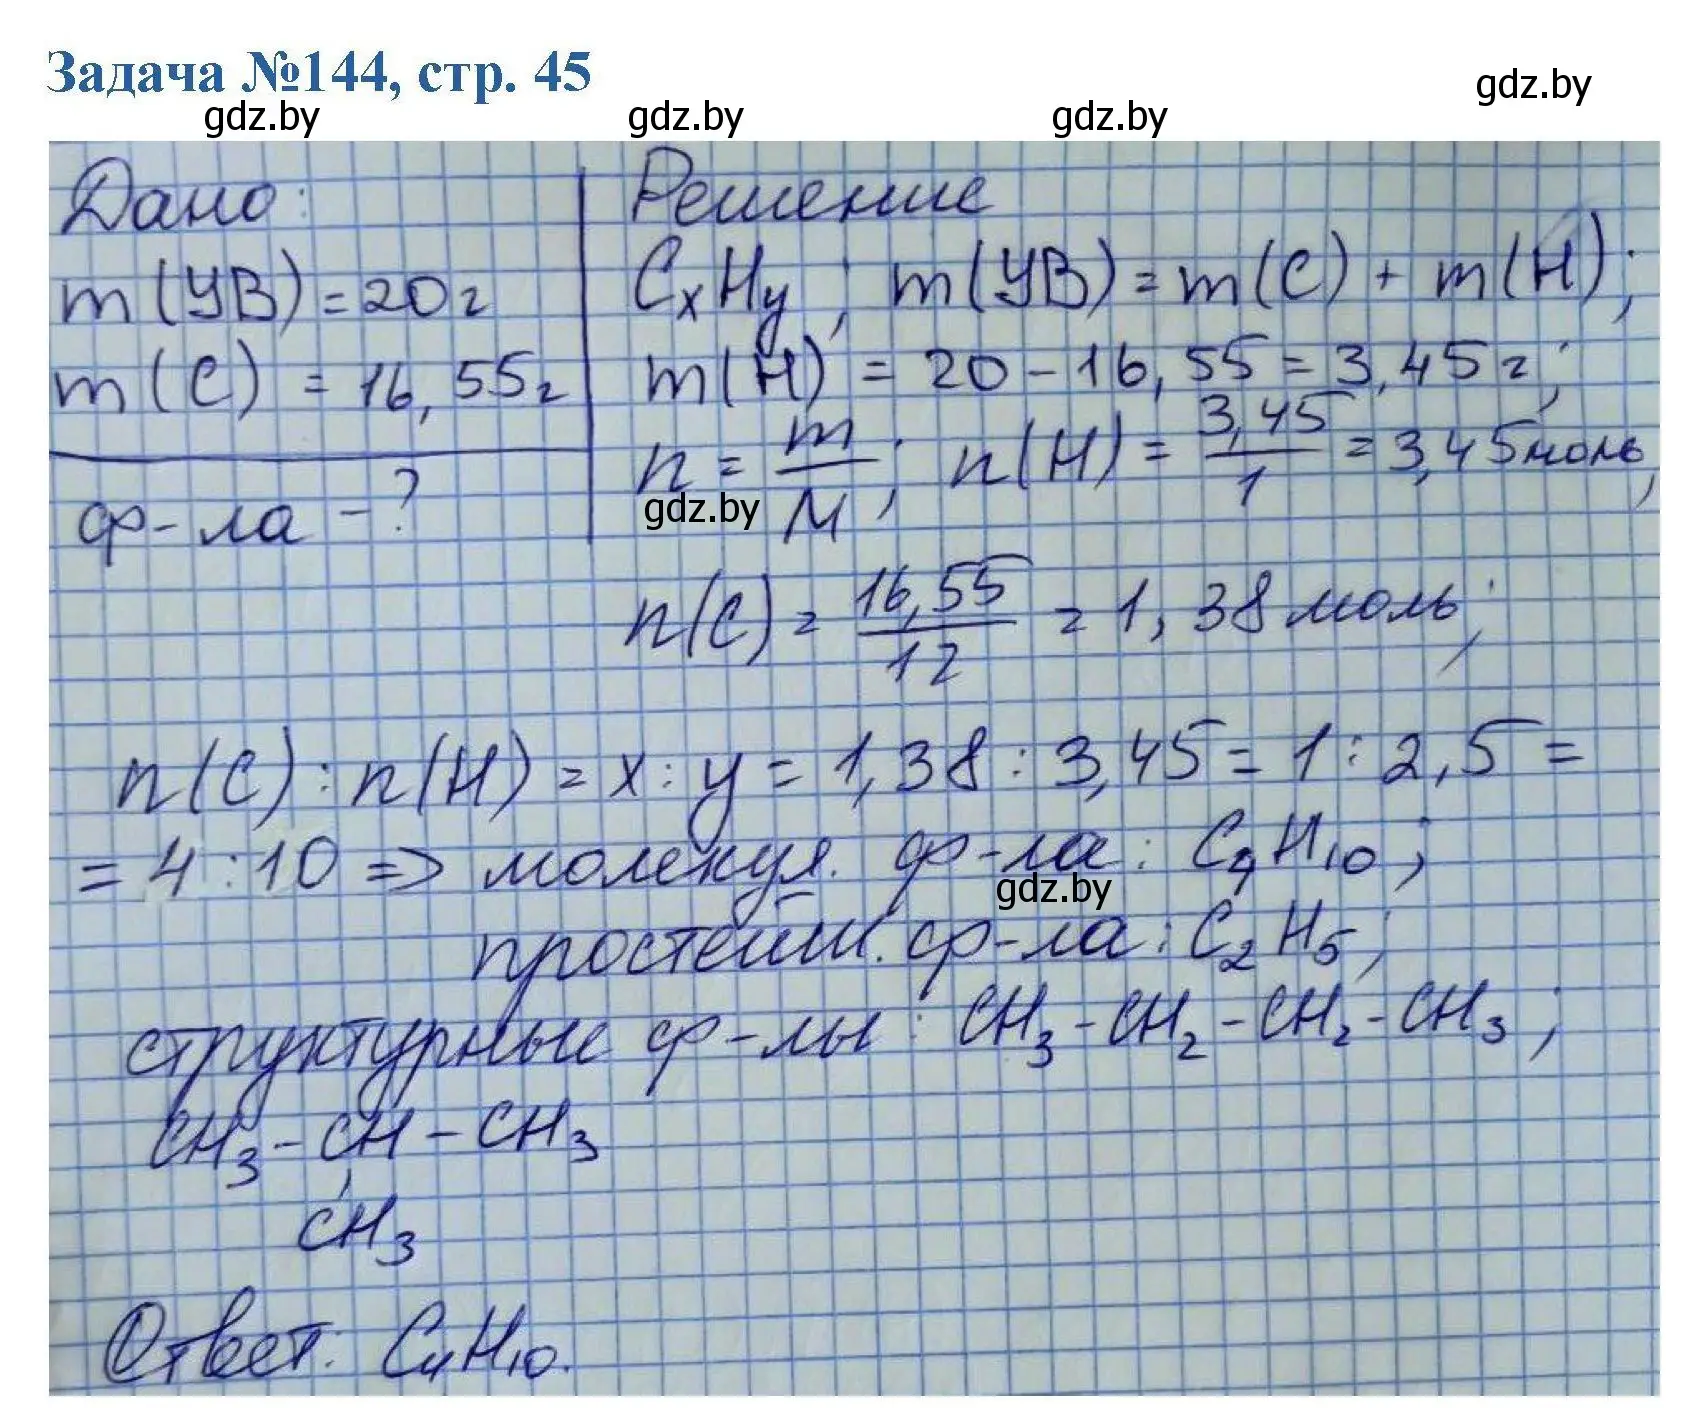 Задача №144, стр. 45
gdz.by gdz.by gdz.by gdz.by
Дано:
m(УВ)=20г
m(С) = 16,55г
ф-ла - ?
Решение
CxHy; m(УВ)=m(С) + m(H);
m(H) = 20-16,55=3,45г;
n = m/M; n(H) = 3,45/1 = 3,45моль,
gdz.by
n(C) = 16,55/12 = 1,38 моль;
n(C):n(H) = x:y = 1,38:3,45=1:2,5=
= 4:10 => молекул. ф-ла: C4H10;
gdz.by
простейш. ф-ла: C2H5;
структурные ф-лы: CH3-CH2-CH2-CH3;
CH3-CH-CH3
CH3
Ответ: C4H10.